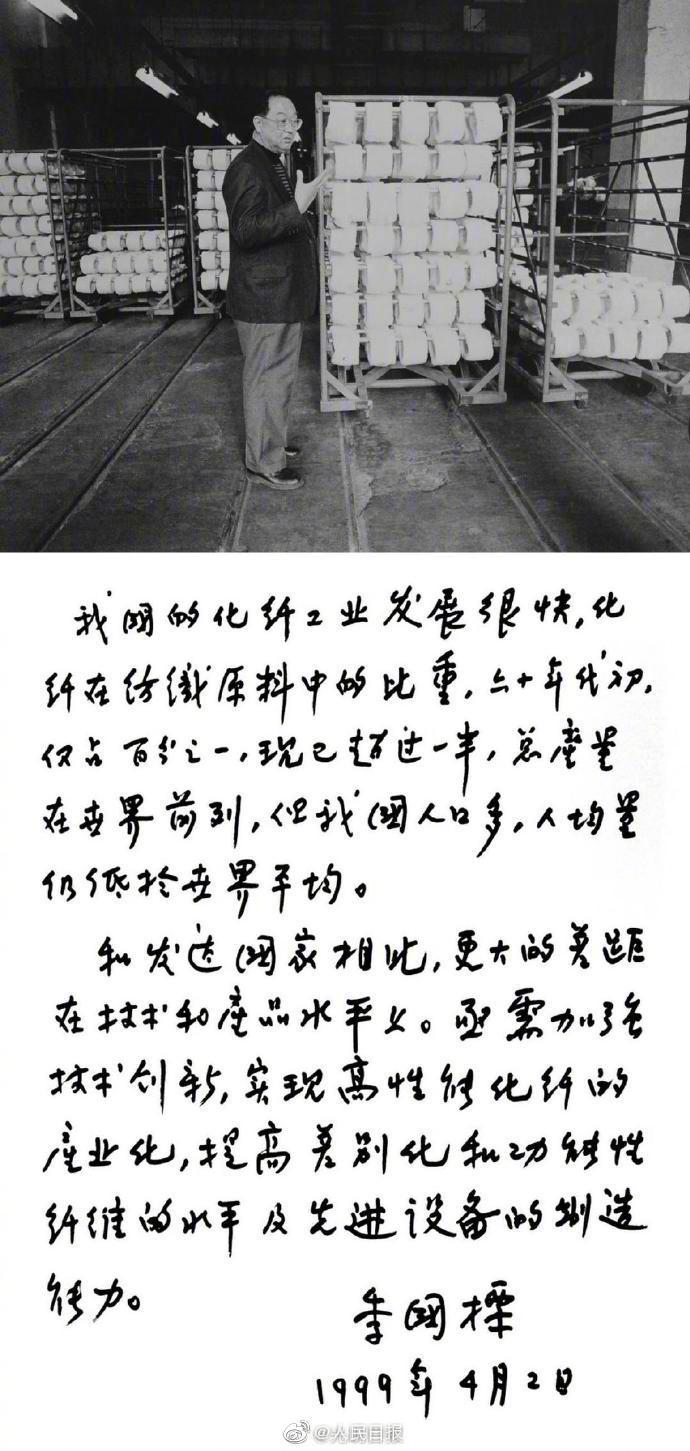 我國的化纤工业发展很快,化
纤在纺織原料中的比重,六十年代初,
仅占百分之一,现已超过一半,总產量
在世界前列,但我國人口多,人均量
仍低於世界平均。
和发达國家相比,更大的差距
在技术和產品水平上。亟需加强
技术创新,实现高性能化纤的
產业化,提高差别化和功能性
纤维的水平及先进设备的制造
能力。
季國标
1999年4月2日
@光明日报